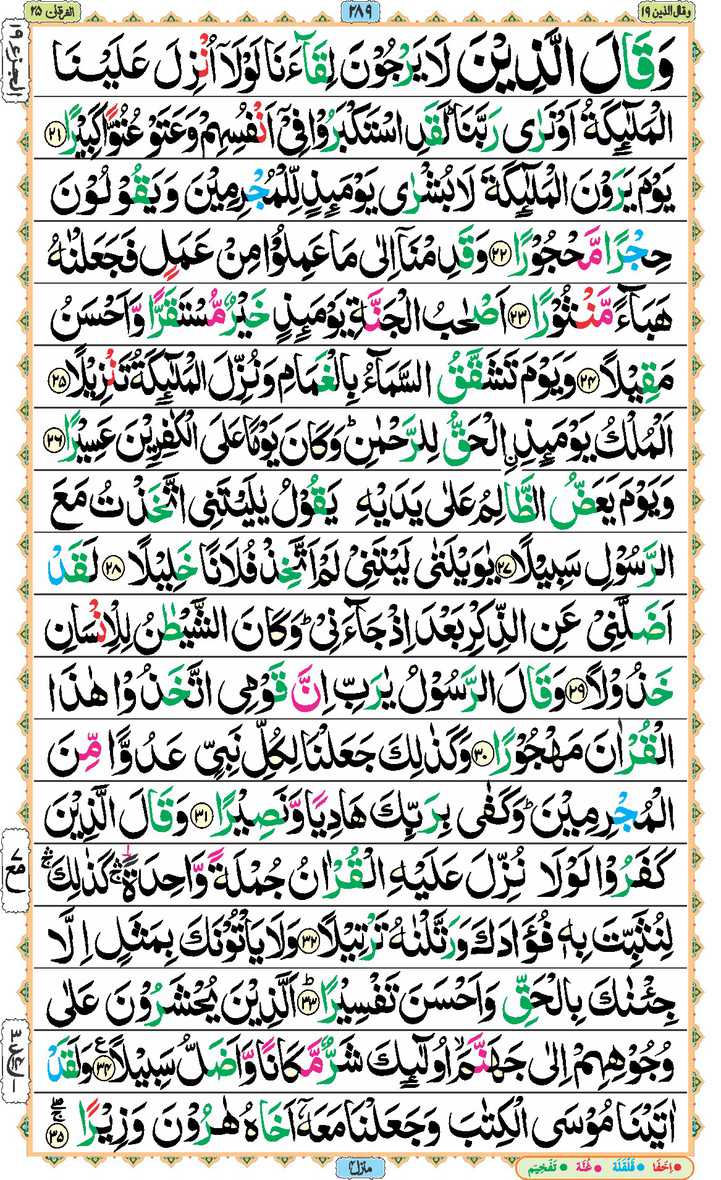 وقال الذین ۱۹
۲۸۹
الفرقان ۲۵
وَقَالَ الَّذِیْنَ لَا یَرْجُوْنَ لِقَآءَنَا لَوْلَاۤ اُنْزِلَ عَلَیْنَا
الْمَلٰٓئِكَةُ اَوْ نَرٰی رَبَّنَا ؕ لَقَدِ اسْتَكْبَرُوْا فِیْۤ اَنْفُسِهِمْ وَعَتَوْ عُتُوًّا كَبِیْرًا ۲۱
یَوْمَ یَرَوْنَ الْمَلٰٓئِكَةَ لَا بُشْرٰی یَوْمَئِذٍ لِّلْمُجْرِمِیْنَ وَیَقُوْلُوْنَ
حِجْرًا مَّحْجُوْرًا ۲۲ وَقَدِمْنَاۤ اِلٰی مَا عَمِلُوْا مِنْ عَمَلٍ فَجَعَلْنٰهُ
هَبَآءً مَّنْثُوْرًا ۲۳ اَصْحٰبُ الْجَنَّةِ یَوْمَئِذٍ خَیْرٌ مُّسْتَقَرًّا وَّاَحْسَنُ
مَقِیْلًا ۲۴ وَیَوْمَ تَشَقَّقُ السَّمَآءُ بِالْغَمَامِ وَنُزِّلَ الْمَلٰٓئِكَةُ تَنْزِیْلًا ۲۵
اَلْمُلْكُ یَوْمَئِذِ ِ۟الْحَقُّ لِلرَّحْمٰنِ ؕ وَكَانَ یَوْمًا عَلَی الْكٰفِرِیْنَ عَسِیْرًا ۲۶
وَیَوْمَ یَعَضُّ الظَّالِمُ عَلٰی یَدَیْهِ یَقُوْلُ یٰلَیْتَنِی اتَّخَذْتُ مَعَ
الرَّسُوْلِ سَبِیْلًا ۲۷ یٰوَیْلَتٰی لَیْتَنِیْ لَمْ اَتَّخِذْ فُلَانًا خَلِیْلًا ۲۸ لَقَدْ
اَضَلَّنِیْ عَنِ الذِّكْرِ بَعْدَ اِذْ جَآءَنِیْ ؕ وَكَانَ الشَّیْطٰنُ لِلْاِنْسَانِ
خَذُوْلًا ۲۹ وَقَالَ الرَّسُوْلُ یٰرَبِّ اِنَّ قَوْمِی اتَّخَذُوْا هٰذَا
الْقُرْاٰنَ مَهْجُوْرًا ۳۰ وَكَذٰلِكَ جَعَلْنَا لِكُلِّ نَبِیٍّ عَدُوًّا مِّنَ
الْمُجْرِمِیْنَ ؕ وَكَفٰی بِرَبِّكَ هَادِیًا وَّنَصِیْرًا ۳۱ وَقَالَ الَّذِیْنَ
كَفَرُوْا لَوْلَا نُزِّلَ عَلَیْهِ الْقُرْاٰنُ جُمْلَةً وَّاحِدَةً ۚۛ كَذٰلِكَ ۚۛ
لِنُثَبِّتَ بِهٖ فُؤَادَكَ وَرَتَّلْنٰهُ تَرْتِیْلًا ۳۲ وَلَا یَاْتُوْنَكَ بِمَثَلٍ اِلَّا
جِئْنٰكَ بِالْحَقِّ وَاَحْسَنَ تَفْسِیْرًا ؕ ۳۳ اَلَّذِیْنَ یُحْشَرُوْنَ عَلٰی
وُجُوْهِهِمْ اِلٰی جَهَنَّمَ ۙ اُولٰٓئِكَ شَرٌّ مَّكَانًا وَّاَضَلُّ سَبِیْلًا ۳۴ ع وَلَقَدْ
اٰتَیْنَا مُوْسَی الْكِتٰبَ وَجَعَلْنَا مَعَهٗۤ اَخَاهُ هٰرُوْنَ وَزِیْرًا ۳۵
منزل ۴
اِخْفَا
قَلْقَلَة
غُنَّة
تَفْخِیْم